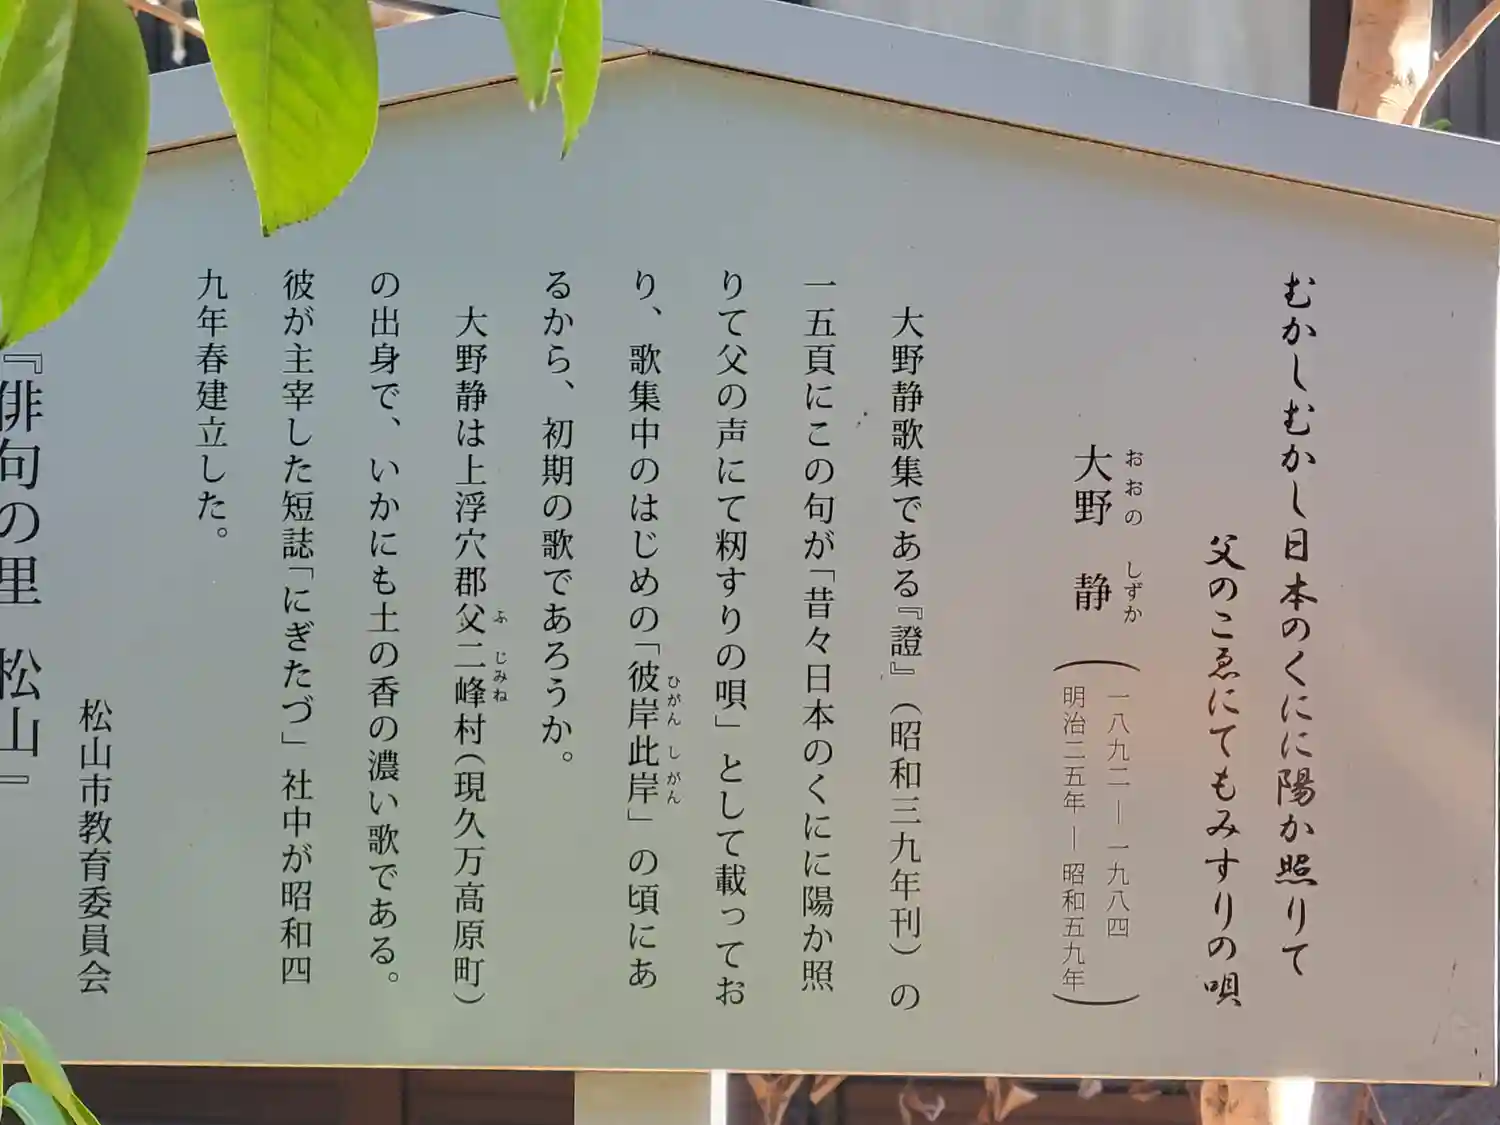 むかしむかし日本のくにに陽か照りて
父のこゑにてもみすりの唄
おおの しずか
大野 静
（一八九二―一九八四
明治二五年―昭和五九年）
大野静歌集である『證』（昭和三九年刊）の
一五頁にこの句が「昔々日本のくにに陽か照
りて父の声にて籾すりの唄」として載ってお
ひがん しがん
り、歌集中のはじめの「彼岸此岸」の頃にあ
るから、初期の歌であろうか。
ふ じみね
大野静は上浮穴郡父二峰村（現久万高原町）
の出身で、いかにも土の香の濃い歌である。
彼が主宰した短誌「にぎたづ」社中が昭和四
九年春建立した。
松山市教育委員会
『俳句の里 松山』